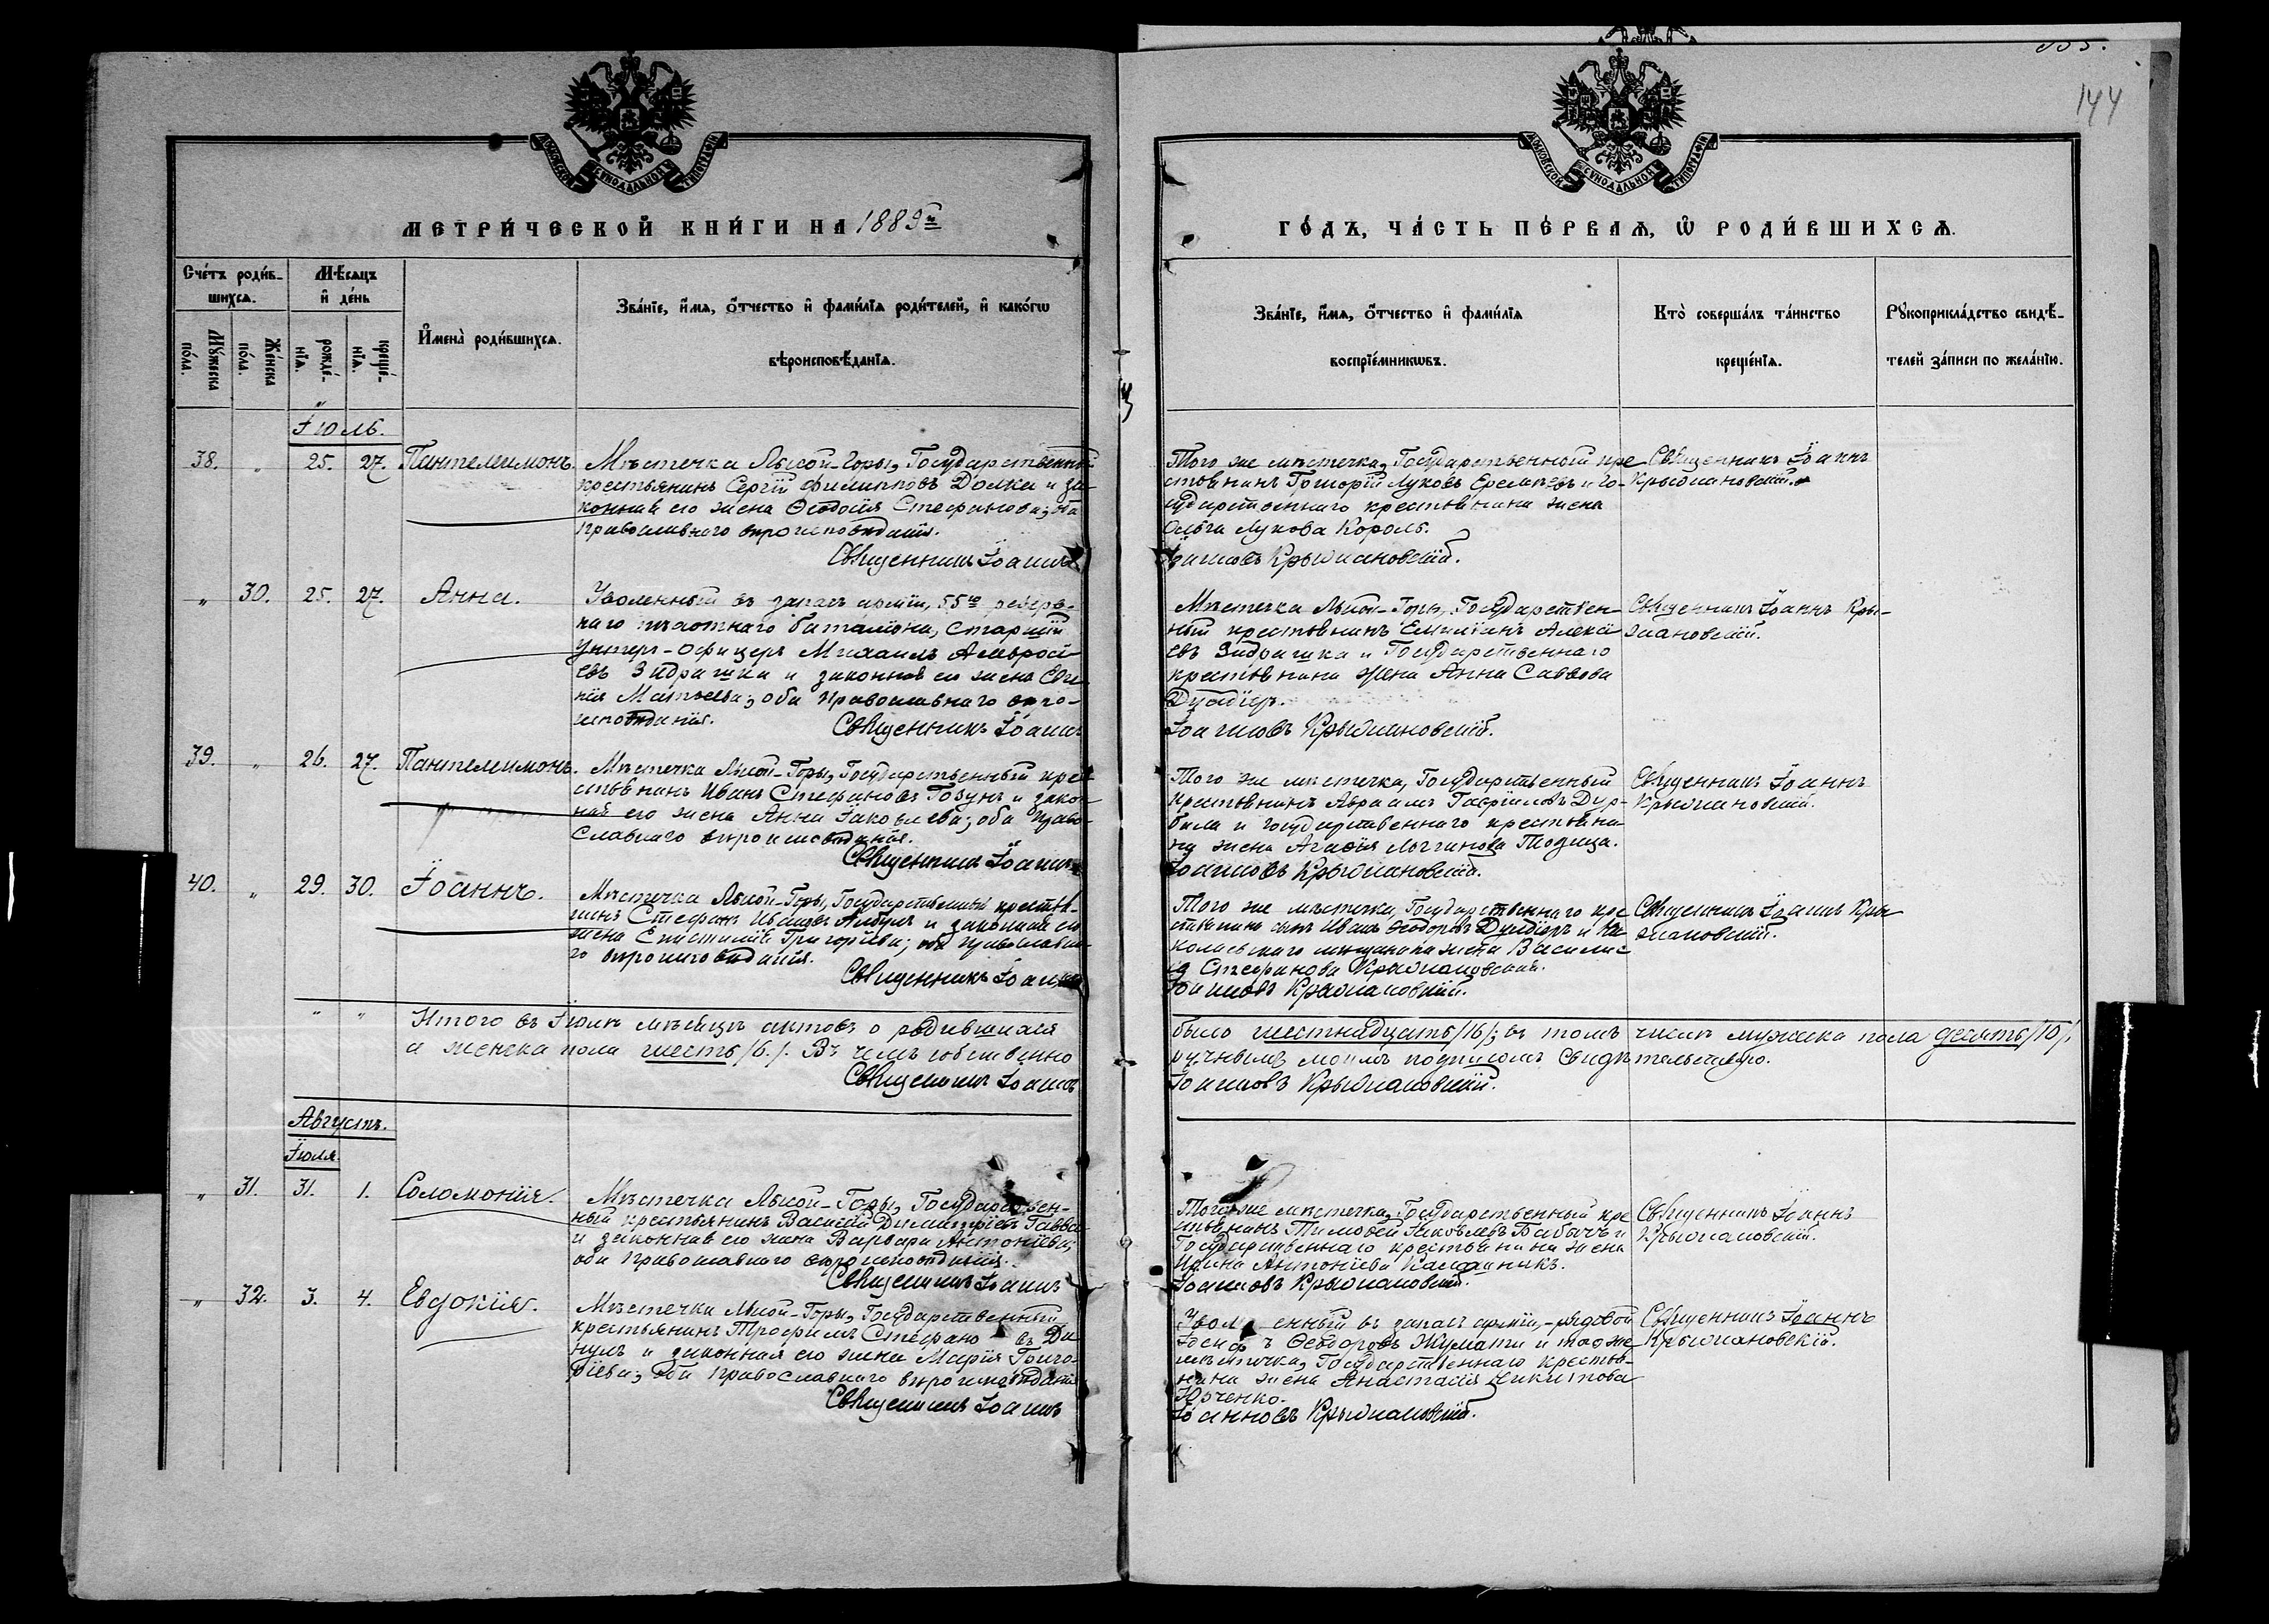 144
МОСКОВСКОЙ СѴНОДАЛЬНОЙ ТИПОГРАФІИ
МОСКОВСКОЙ СѴНОДАЛЬНОЙ ТИПОГРАФІИ
МЕТРИ́ЧЕСКОЙ КНИ́ГИ НА 1889й
ГО́ДЪ, ЧА́СТЬ ПЕ́РВАѦ, Ѡ҆ РОДИ́ВШИХСѦ.
Сче́тъ роди́в-
шихсѧ.
Мꙋ́жеска по́ла.
Же́нска по́ла.
Мѣ́сѧцъ
и҆ де́нь
рожде́-
нїѧ.
креще́-
нїѧ.
И҆мена̀ роди́вшихсѧ.
Зва́нїе, и҆́мѧ, ѻ҆́тчество и҆ фами́лїѧ роди́телей, и҆ како́гѡ
вѣроисповѣ́данїѧ.
Зва́нїе, и҆́мѧ, ѻ҆́тчество и҆ фами́лїѧ
воспрїе́мникѡвъ.
Кто̀ соверша́лъ та́инство
креще́нїѧ.
Рꙋкоприкла́дство свидѣ́-
телей за́писи по жела́нїю.
Іюль.
38. " 25. 27. Пантелеимонъ.
Мѣстечка Лысой-Горы, Государственный
крестьянинъ Сергій Филипповъ Долка и за
конная его жена Ѳеодосія Стефанова; оба
православнаго вѣроисповѣданія.
Священникъ Іоаннъ
Того же мѣстечка, Государственный кре
стьянинъ Григорій Луковъ и го-
сударственнаго крестьянина жена
Ольга Лукова Король.
Іоанновъ Крыжановскій.
Священникъ Іоаннъ
Крыжановскій.
" 30. 25. 27. Анна.
Уволенный въ запасъ арміи, 55го резерв-
наго пѣхотнаго баталіона, старшій
Унтеръ-офицеръ Михаилъ Амвросі-
евъ Задрашка и законная его жена Евге
нія Матѳеева; оба православнаго вѣро-
исповѣданія.
Священникъ Іоаннъ
Мѣстечка Лысой-Горы, Государствен-
ный крестьянинъ Емиліанъ Алексі
евъ Задрашка и Государственнаго
крестьянина жена Анна Саввова
Іоанновъ Крыжановскій.
Священникъ Іоаннъ Кры-
жановскій.
39. " 26. 27. Пантелеимонъ.
Мѣстечка Лысой-Горы, Государственный кре
стьянинъ Иванъ Стефановъ Гозунъ и закон
ная его жена Анна Іаковлева; оба право-
славнаго вѣроисповѣданія.
Священникъ Іоаннъ
Того же мѣстечка, Государственный
крестьянинъ Авраамъ Гавріиловъ Дур-
бала и государственнаго крестьяни-
на жена Агаѳія Логгинова
Іоанновъ Крыжановскій.
Священникъ Іоаннъ
Крыжановскій.
40. " 29. 30. Іоаннъ.
Мѣстечка Лысой-Горы, Государственный крестья-
нинъ Стефанъ Ивановъ Албулъ и законная его
жена Епистимія Григоріева; оба православна-
го вѣроисповѣданія.
Священникъ Іоаннъ
Того же мѣстечка, Государственнаго кре
стьянина сынъ Иванъ Ѳеодоровъ и Ни
колаевскаго мѣщанина жена Василис
са Стефанова Крыжановская.
Іоанновъ Крыжановскій.
Священникъ Іоаннъ Кры
жановскій.
" " Итого въ Іюлѣ мѣсяцѣ актовъ о родившихся
было шестнадцать /16/; въ томъ числѣ мужеска пола десять /10/,
а женска пола шесть /6./. Въ чемъ собственно
ручнымъ моимъ подписомъ свидѣтельствую.
Священникъ Іоаннъ
Іоанновъ Крыжановскій.
Августъ.
Іюля.
" 31. 31. 1. Соломонія.
Мѣстечка Лысой-Горы, Государствен-
ный крестьянинъ Василій Димитріевъ
и законная его жена Варвара Антоніева;
оба православнаго вѣроисповѣданія.
Священникъ Іоаннъ
Того же мѣстечка, Государственный кре
стьянинъ Тимоѳей Іаковлевъ Бабычъ и
Государственнаго крестьянина жена
Ирина Антоніева
Іоанновъ Крыжановскій.
Священникъ Іоаннъ
Крыжановскій.
" 32. 3. 4. Евдокія.
Мѣстечка Лысой-Горы, Государственный
крестьянинъ Трофимъ Стефановъ
и законная его жена Марія Григо-
ріева; оба православнаго вѣроисповѣданія.
Священникъ Іоаннъ
Уволенный въ запасъ арміи,-рядовой
Іосифъ Ѳеодоровъ и того же
мѣстечка, Государственнаго крестья-
нина жена Анастасія Никитова
Юрченко.
Іоанновъ Крыжановскій.
Священникъ Іоаннъ
Крыжановскій.